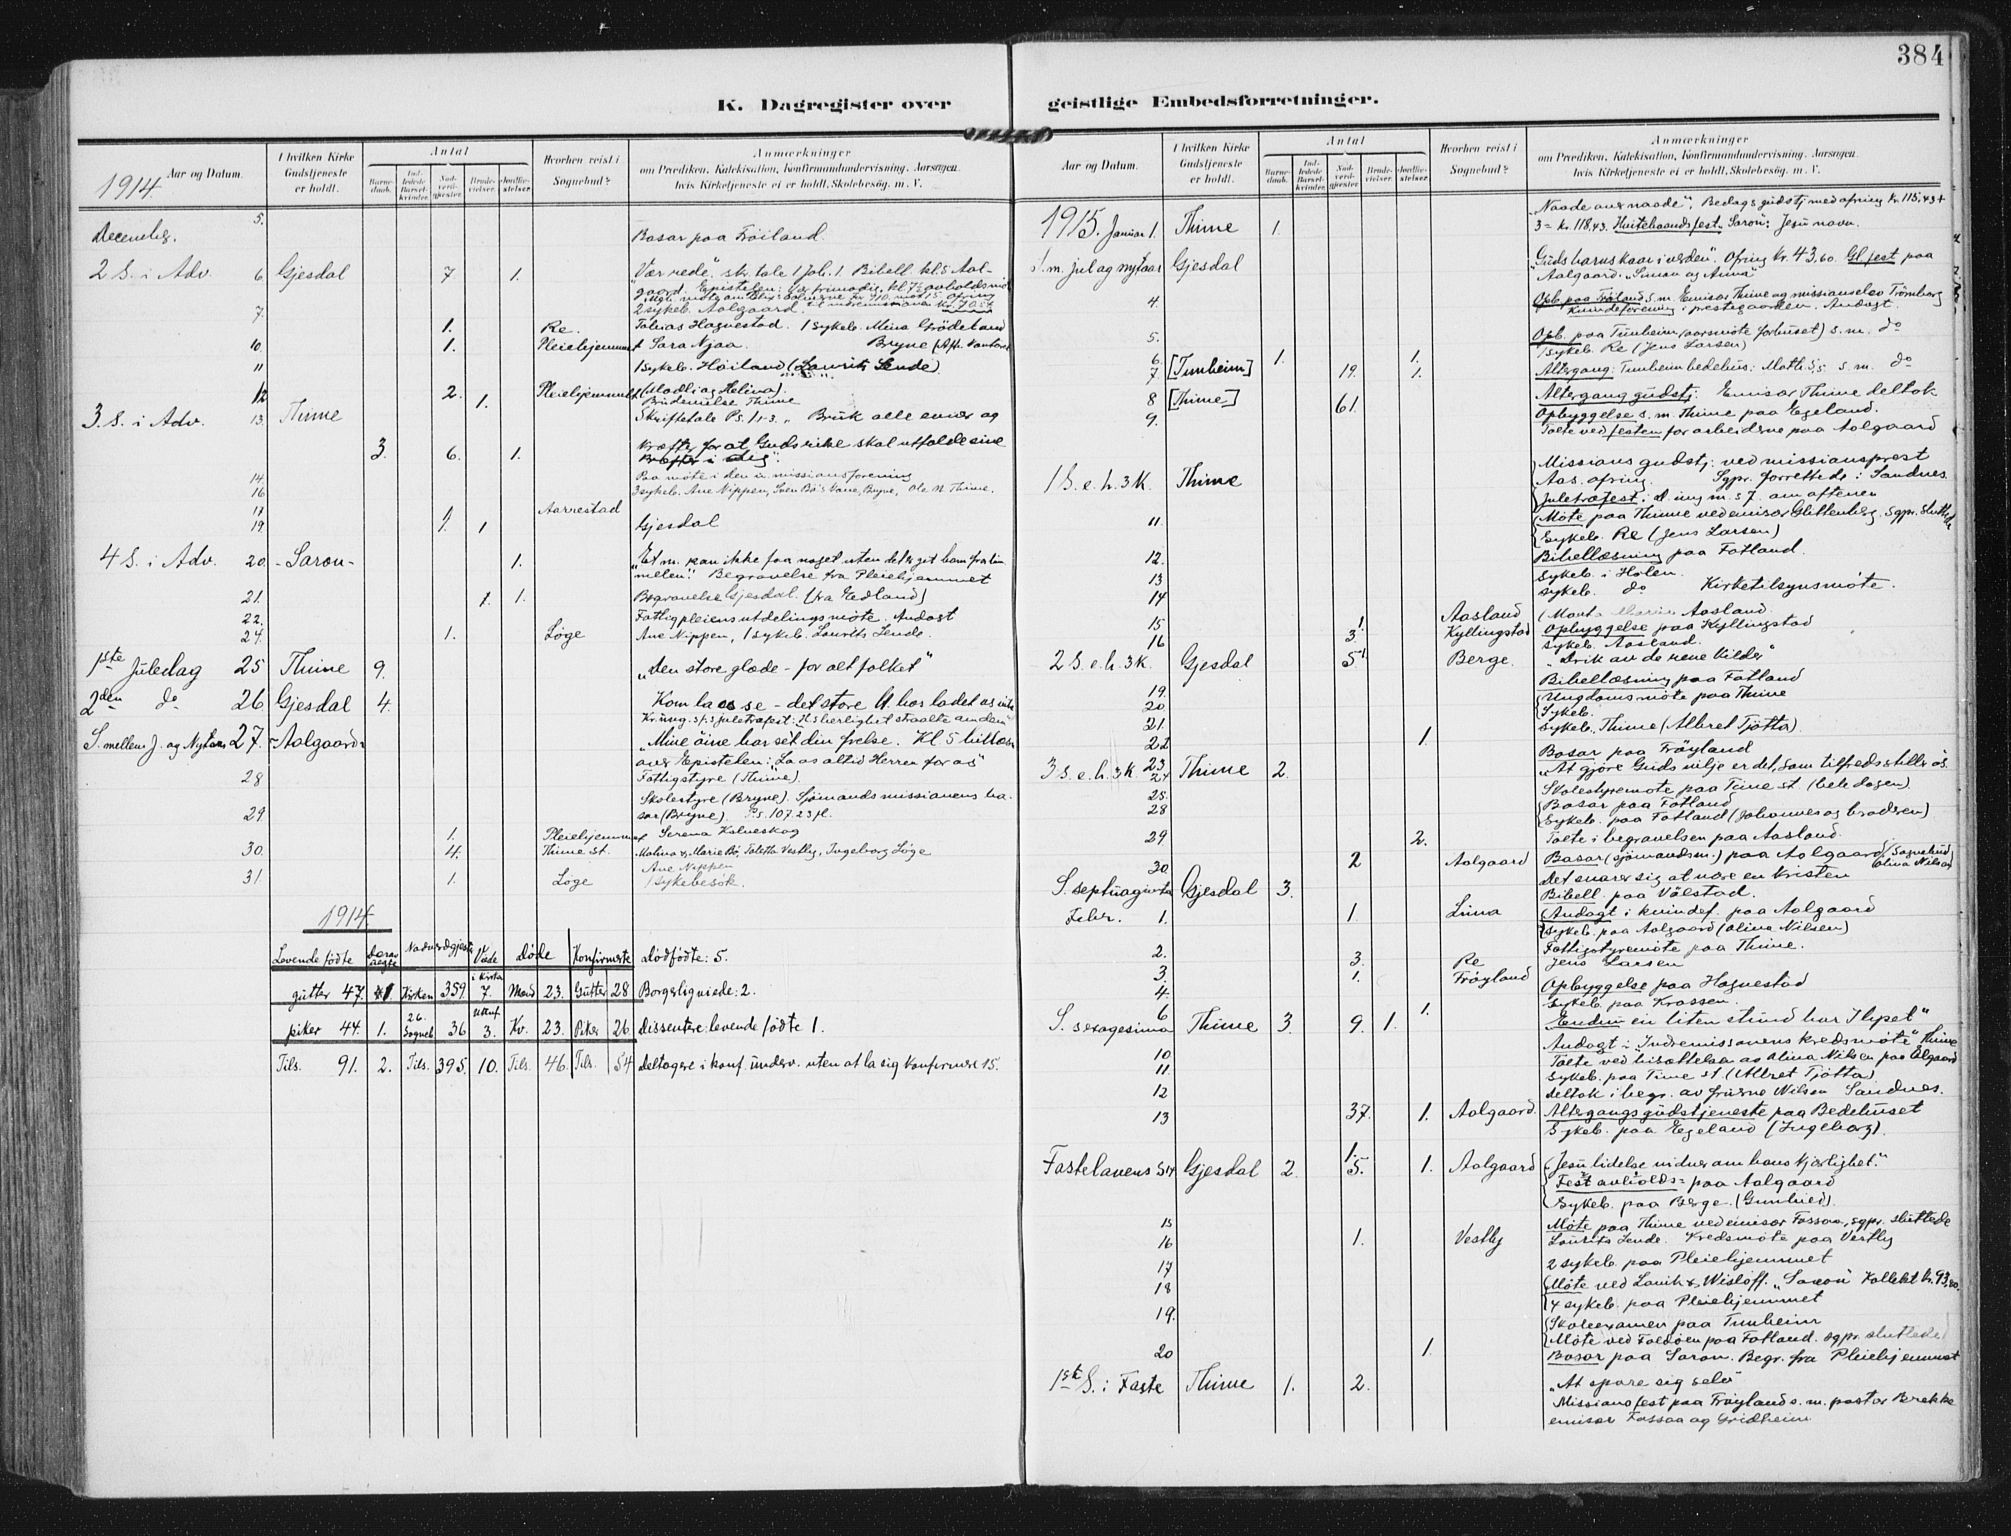 384
K. Dagregister over
geistlige Embedsforretninger.
Aar og Datum.
I hvilken Kirke Gudstjeneste er holdt.
Antal
Barnedaab.
Indledede Barselkvinder.
Nadverdgjester.
Brudevielser.
Jordfæstelser.
Hvorhen reist i Sognebud?
Anmærkninger
om Prædiken, Katekisation, Konfirmandundervisning, Aarsagen,
hvis Kirketjeneste ei er holdt, Skolebesøg, m. V.
1914.
5.
December.
Basar paa Fröiland.
2 S. i Adv. 6 Gjesdal 7 1. "Vær rede", skr. tale 1 Joh. 1. Bibell. kl. 5 Aal-
gaard. Epistelen:
7. 2 sykeb. Aalgaard.
1. Re. Tobias Hognestad. 1 sykeb. Mina Grödeland
10. 1. Pleiehjemmet Sara Njaa. Bryne
11 1 sykeb. Höiland (Laurits Lende)
12 2. Pleiehjemmet
1. Brudevielse Thime
3. S. i Adv. 13. Thime Skriftetale Ps. 1,1-3. "Bruk alle evner og
3. 6. 1. kræfter for at Guds rike skal utfolde sine
kræfter i dig".
14. Paa møte i den i. missionsforening
16 3 sykeb. Ane Nippen, Sven Bö's Kone, Bryne, Ole N. Thime.
17 1. Aarrestad
19. 1. 1 Gjesdal
4 S. i Adv. 20. - Saron - 1. "Et m. kan ikke faa noget uten det er git ham fra him
melen." Begravelse fra Pleiehjemmet
21. 1. 1. Begravelse Gjesdal. (fra Edland)
22. Fattigpleiens utdelingsmöte. Andagt
24. 1. Löge Ane Nippen, 1 sykeb. Laurits Lende.
1ste Juledag 25 Thime 9. "Den store glæde - for alt folket"
2den do 26 Gjesdal 4. Kom la os se - det store H. har ladet os vite
Kr. ung. s. f. s juletræfest:
S. mellem J. og Nytaar 27. - Aalgaard - "Mine öine har set din frelse. Kl. 5 bibellæsn.
over Epistelen: "La os altid Herren for os"
28 Fattigstyre (Thime).
Skolestyre (Bryne). Sjömandsmissionens ba-
29 sar (Bryne). Ps. 107.23 fl.
1. Pleiehjemmet Serena Kalveskog
30. 4. Thime st. Malina & Marie Bö, Taletta Vestly, Ingeborg Löge
Ane Nippen
31. 1. Löge 1 sykebesök.
1914.
Levende födte Derav uegte Nadverdgjester Viede döde Konfirmerte dödfödte: 5.
gutter 47. 1. Kirken 359. i kirke 7. Mand 23. Gutter 28 Borgerlig viede: 2.
piker 44. 1. 26. Sogneb. 36 utenf. 3. Kv. 23. Piker 26 Dissentere: levende födte 1.
Tils. 91. 2. Tils. 395. 10. Tils. 46. Tils. 54 deltagere i konf. underv. uten at la sig konfirmere 15.
Aar og Datum.
I hvilken Kirke Gudstjeneste er holdt.
Antal
Barnedaab.
Indledede Barselkvinder.
Nadverdgjester.
Brudevielser.
Jordfæstelser.
Hvorhen reist i Sognebud?
Anmærkninger
om Prædiken, Katekisation, Konfirmandundervisning, Aarsagen,
hvis Kirketjeneste ei er holdt, Skolebesøg, m. V.
"Naade over naade". Bededagsgudstj. med ofring Kr. 115,43 +
1915. Januar 1. Thime 1. 3 = kr. 118,43. Hvitebaandsfest. Saron: Jesu navn.
S. m. jul og nytaar Gjesdal Ofring Kr. 43.60. Gl fest paa
"Aalgaard. "Simon og Anna"
4. Opb. paa Fröiland s. m. Emisær Thime og missionselev Trömborg
Kvindeforening i prestegaarden. Andagt
5. Opb. paa Tunheim (aarsmöte forhuset) s. m. do
6 1. 1. 1 sykeb. Re (Jens Larsen)
7 [Tunheim] 19. 1. Altergang: Tunheim bedehus: Math. 5,5 s. m. do
8 [Thime] 61. Altergangsgudstj. Emisær Thime deltok
9. Opbyggelse s. m. Thime paa Egeland.
Talte ved festen for arbeiderne paa Aalgaard
1 S. e. h. 3 K. Thime Missionsgudstj. ved missionsprest
Aas. ofring. Sgpr. forrettede i Sandnes.
Juletræfest i d. ung. m. s 7. om aftenen
11. Möte paa Thime ved emisær Glittenberg. sgpr. sluttede
Sykeb. Re (Jens Larsen)
12. Bibellæsning paa Fotland.
13 Sykeb. i Holen.
14 Sykeb. do Kirketilsynsmöte.
15 1. Aasland Aasland.
16 3. Kyllingstad Opbyggelse paa Kyllingstad
Sykeb. Aasland.
2 S. e. h. 3 K. Gjesdal 5. Berge. "Drik av de rene kilder"
Bibellæsning paa Fotland
19. Ungdomsmöte paa Thime
20. Sykeb.
21. Sykeb. Thime (Albret Tjötta)
22 1.
23 Basar paa Fröyland
3 S. e. h. 3 K. 24 Thime 2. "At gjöre Guds vilje er det, som tilfredsstiller os.
25. Skolestyremöte paa Time st (hele dagen)
28 Basar paa Fotland
Sykeb. paa Fotland (Johannes og brodren)
29 2. Talte i begravelsen paa Aasland.
30 2 Aalgaard Basar (sjömandsm.) paa Aalgaard. (Sognebud Olina Nilsen)
S. septuagesima Gjesdal 3. Det svarer sig at være en kristen
Bibell paa Välstad.
Febr. 1. 1. Lima Andagt i kvindef. paa Aalgaard
Sykeb. paa Aalgaard (Olina Nilsen)
2. 3. Re Fattigstyremöte paa Thime. Jens Larsen
3. 1. Fröyland Opbyggelse paa Hognestad
4. Sykeb. paa Krossen.
6 1.
S. sexagesima Thime 3. 9. 1. "Endnu en liten stund har I lyset"
Andagt i Indremissionens kredsmöte Thime
10 Talte ved bisættelse av Olina Nilsen paa Aalgaard
11. Sykeb. paa Time st (Albret Tjötta)
12 deltok i begr. av fru Nilsen Sandnes.
13 37. 1. Aalgaard. Altergangsgudstjeneste paa Bedehuset
Sykeb. paa Egeland (Ingeborg).
Fastelavens S 14 Gjesdal 2. 1. 5. 1. Aalgaard "Jesu lidelse vidner om hans kjærlighet."
Fest avholds- paa Aalgaard
Sykeb. paa Berge (Gunhild).
15 Möte paa Thime ved emisær Fossaa, sgpr. sluttede
16 1. Vestly Laurits Lende. Kredsmöte paa Vestly
17 2 sykeb. paa Pleiehjemmet
18 Möte ved Lavik & Wislöff. "Saron" Kollekt kr. 93,80.
4 sykeb. paa Pleiehjemmet
19. Skoleexamen paa Tunheim
Möte ved Foldöen paa Fotland. sgpr. sluttede
20 1. Basar paa Saron. Begr. fra Pleiehjemmet
1ste S. i Faste Thime 1. 2. "At spare sig selv"
Missionsfest paa Fröyland s. m. pastor Brekke
emisær Fossaa og Gridheim